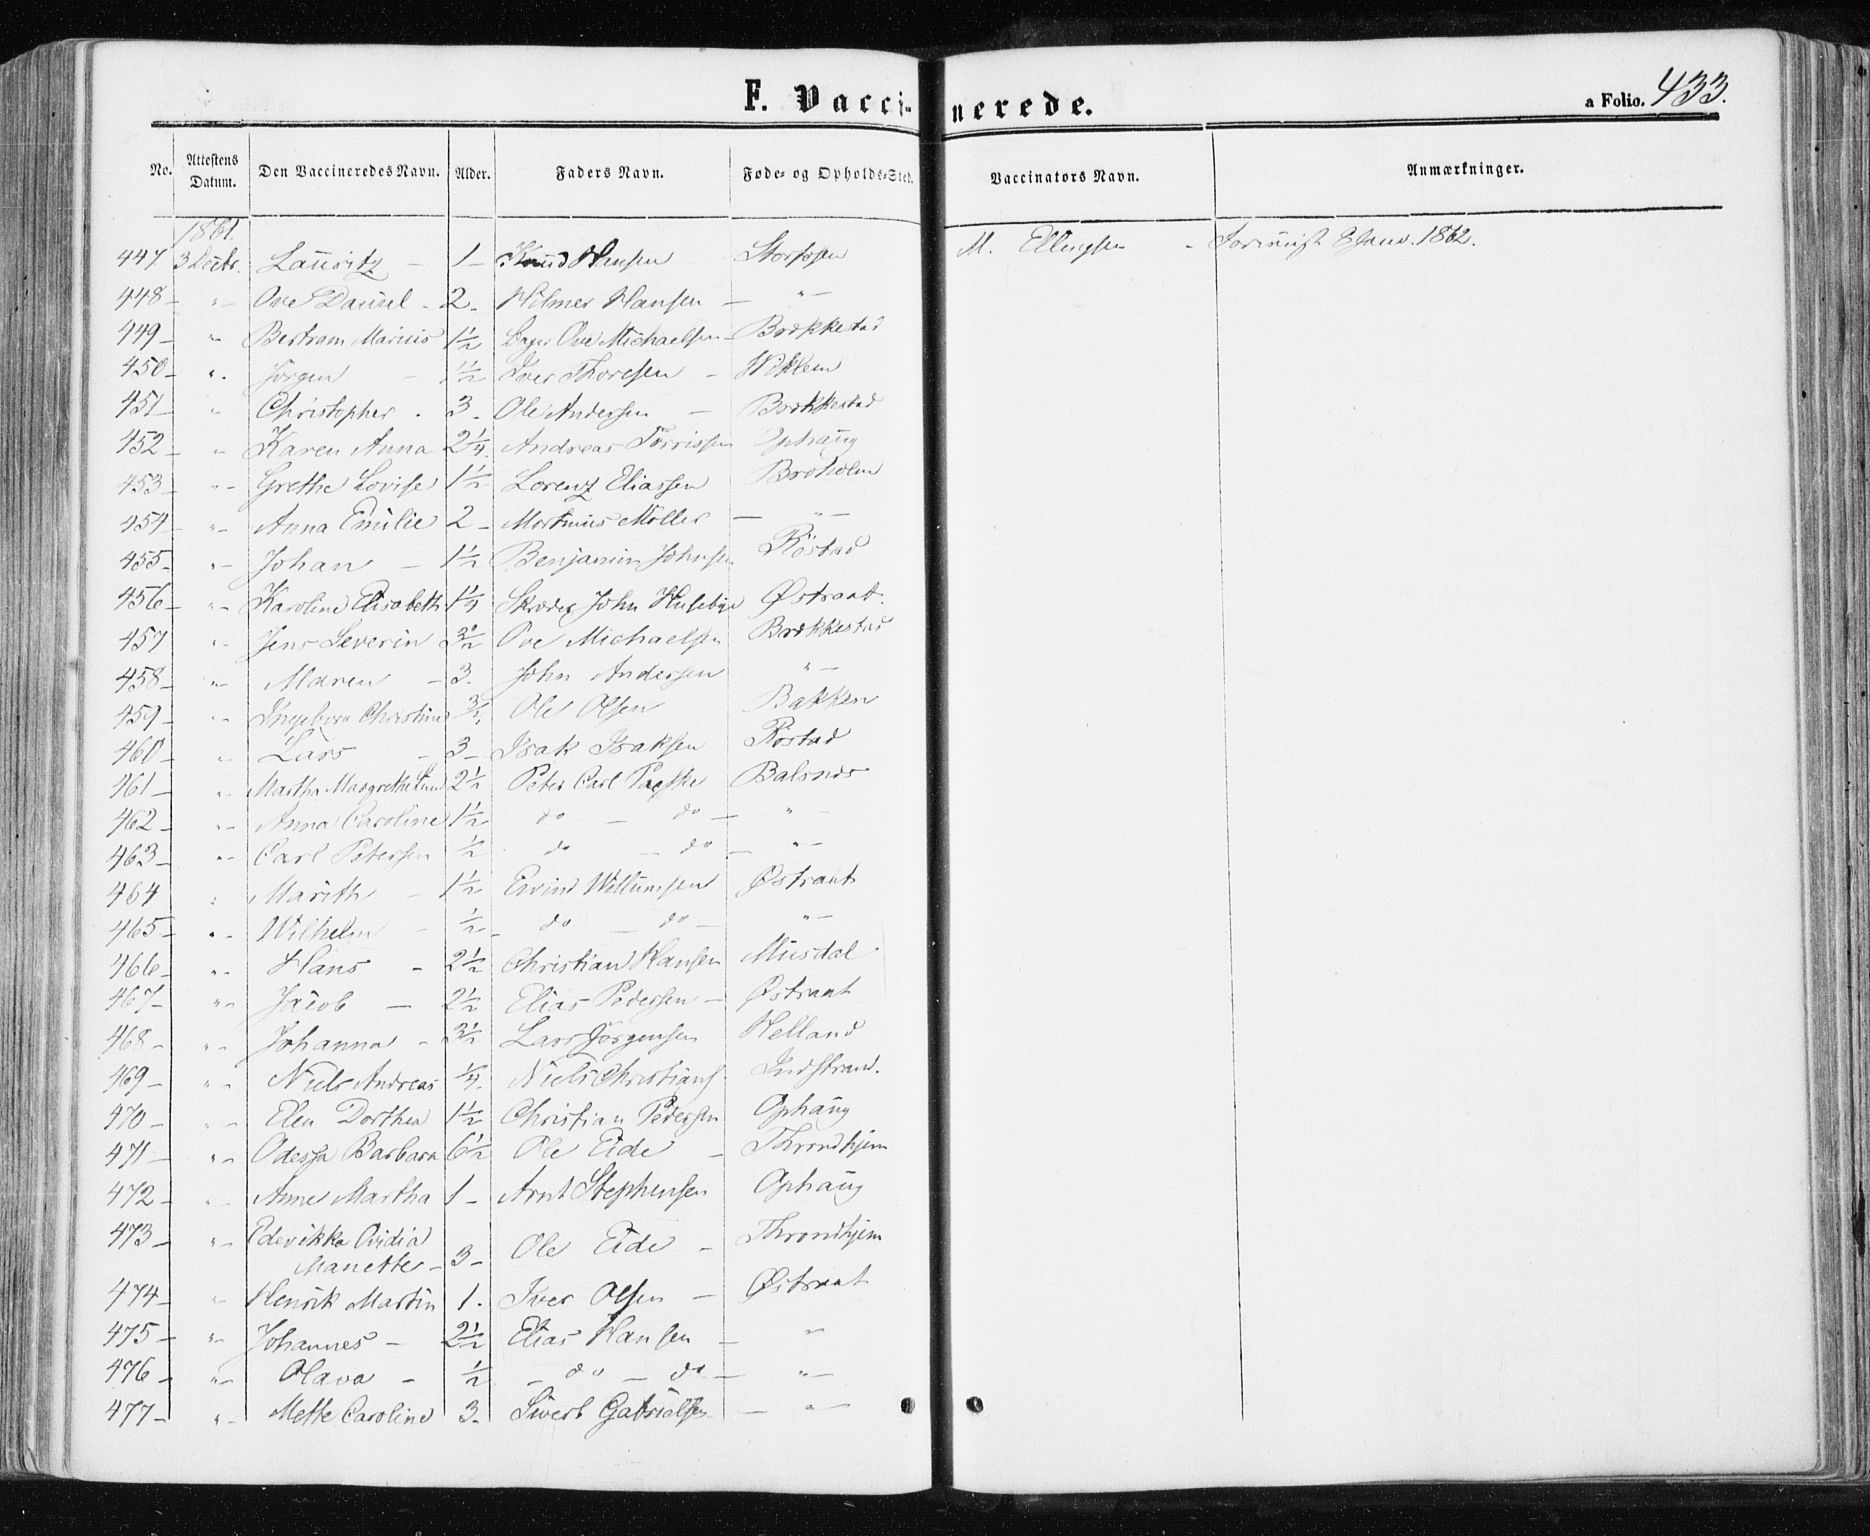 F. Vaccinerede.
a Folio. 433.
No. Attestens Datum. Den Vaccineredes Navn. Alder. Faders Navn. Føde- og Opholds-Sted. Vaccinators Navn. Anmærkninger.
1861
447 3 Decbr. Lauritz - 1 - Knud Hansen Storfosen M. Ellingsen - 8 Janv. 1862.
448 - " - Ove Daniel - 2 - Hilmer Hansen - " -
449 - " Bertram Marius 1½ Ove Michaelsen - Brækkestad
450 - " Jørgen - 1½ Iver Thoresen - Viklem
451 - " Christopher - 3 - Ole Andersen - Brækkestad
452 - " Karen Anna 2¼ Andreas Torrissen Ophaug
453 - " - Grethe Lovise 1½ Lorenz Eliassen Broholm
454 - " - Anna Emilie 2 - Martinus Møller - " -
455 - " - Johan - 1½ Benjamin Johnsen Røstad
456 - " - Karoline Elisabeth 1¼ Skræder John Husebye Østraat.
457 " - Jens Severin 3½ Ove Michaelsen Brækkestad
458 - " - Maren - 3. John Andersen " -
459 - " - Ingeborg Christine Ole Olsen Bakken
460 - " Lars - 3 - Isak Isaksen Røstad
461 - " - Martha Margrethe 2½ Peter Carl Balsnes
462 - " - Anna Caroline 1½ do - do - " -
463 - " - Carl Petersen ½ do - do - " -
464 " Marith - 1½ Eivind Willumsen Østraat
465 - " - Wilhelm - ½ - do - do - " -
466 - " - Hans - 2½ Christian Hansen Musdal
467 - " - Jacob - 2½ Elias Pedersen - Østraat
468 - " - Johanna - 3½ Lars Jørgensen Helland
469 - " - Niels Andreas ¼ - Niels Christians. Indstrand.
470 - " - Elen Dorthea 1½ Christian Pedersen Ophaug
471 - " - Odessa Barbara 6½ Ole Eide - Throndhjem
472 - " Anne Martha 1 - Arnt Stephensen Ophaug
473 - " - Edevikka Ovidia
Manette - 3 - Ole Eide - Throndhjem
474 - " Henrik Martin 1. Iver Olsen - Østraat
475 - " - Johannes - 2½ Elias Hansen - " -
476 - " - Olava - ½ - do - do - " -
477 - " - Mette Caroline 3 - Sivert Gabrielsen - " -